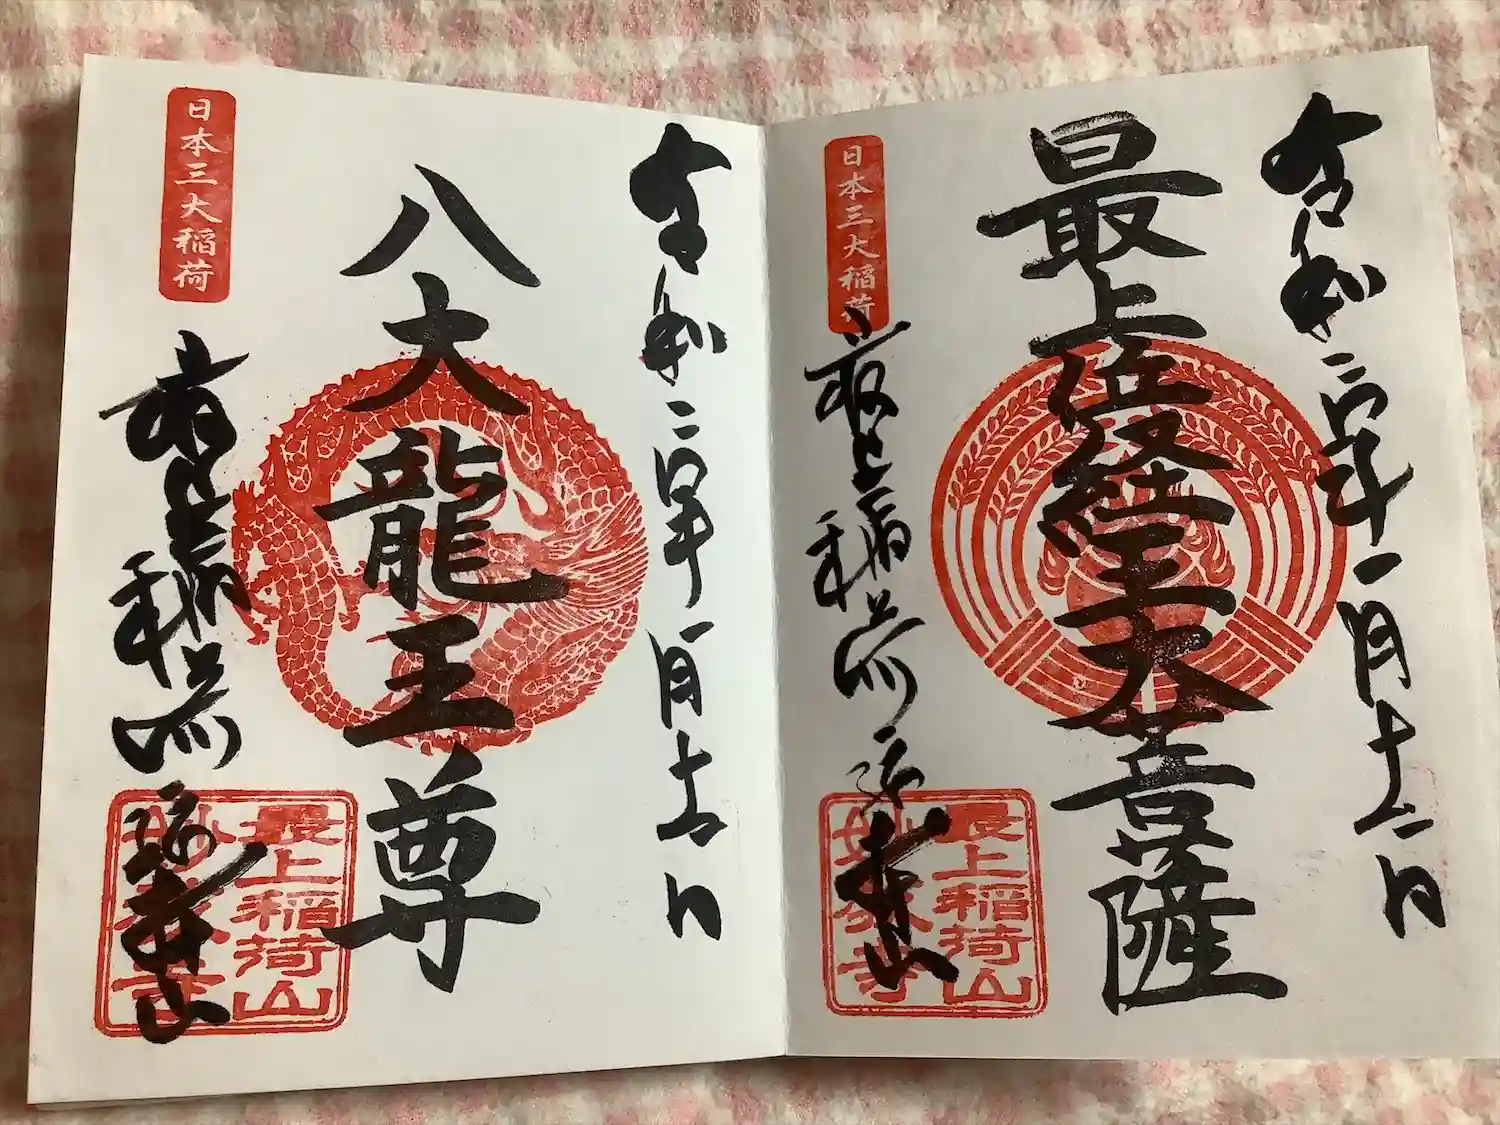 令和二年一月十二日
最上位経王大菩薩
日本三大稲荷
最上稲荷総本山
最上稲荷山
妙教寺
令和二年一月十二日
八大龍王尊
日本三大稲荷
最上稲荷総本山
最上稲荷山
妙教寺